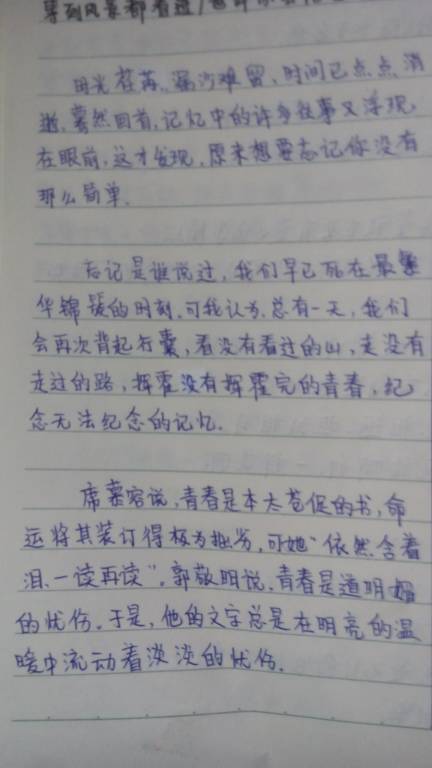 等到风景都看透/也许你会陪
时光荏苒、漏沙难留,时间已点点消
逝,蓦然回首,记忆中的许多往事又浮现
在眼前,这才发现,原来想要忘记你没有
那么简单.
忘记是谁说过,我们早已死在最繁
华锦簇的时刻,可我认为,总有一天,我们
会再次背起行囊,看没有看过的山,走没有
走过的路,挥霍没有挥霍完的青春,纪
念无法纪念的记忆.
席慕容说,青春是本太苍促的书,命
运将其装订得极为拙劣,可她“依然含着
泪,一读再读”,郭敬明说,青春是道明媚
的忧伤.于是,他的文字总是在明亮的温
暖中流动着淡淡的忧伤.